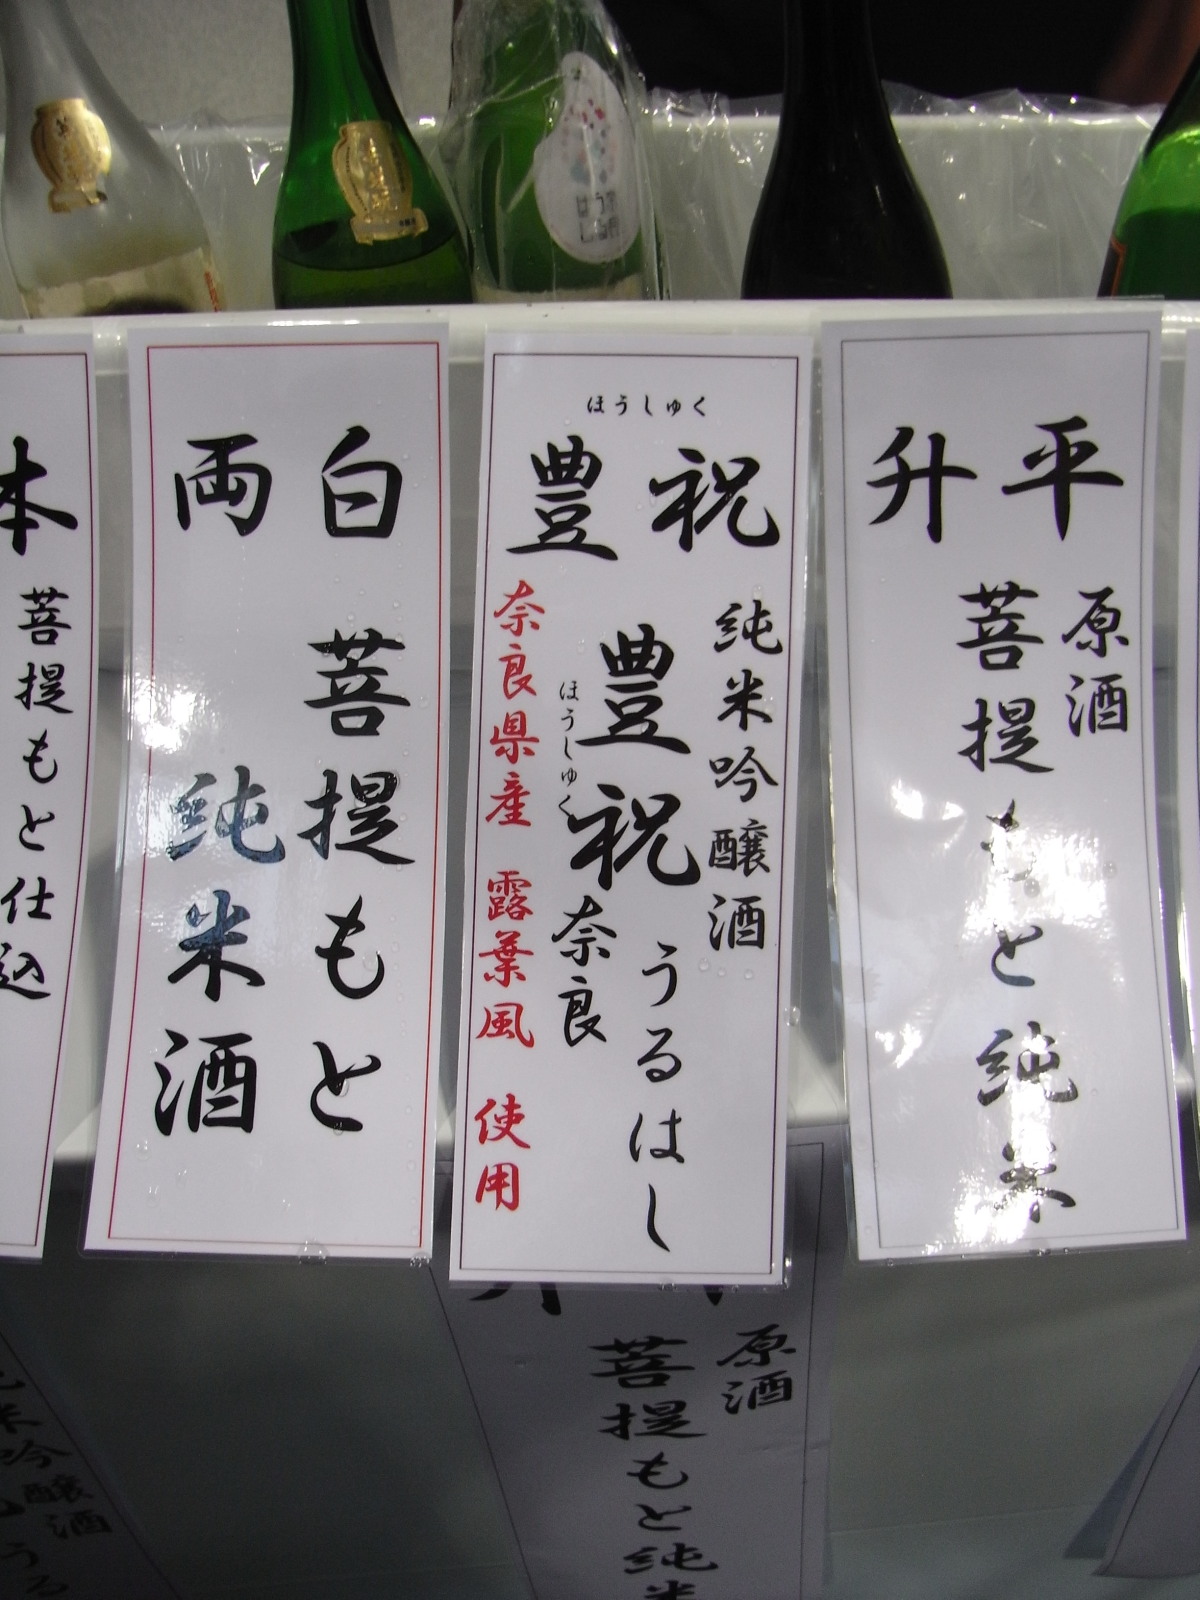 ほうしゅく
豊祝
純米吟醸酒
豊祝 うるはし
ほうしゅく
奈良
奈良県産 露葉風 使用
平升
原酒
菩提もと純米
白両
菩提もと
純米酒
本
菩提もと仕込
原酒
菩提もと純米
純米吟醸酒